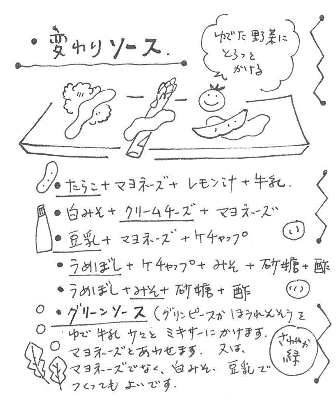 ・変わりソース.
ゆでた野菜に
とろっと
かける
・たらこ+マヨネーズ+レモン汁+牛乳.
・白みそ+クリームチーズ+マヨネーズ
・豆乳+マヨネーズ+ケチャップ
・うめぼし+ケチャップ+みそ+砂糖+酢
・うめぼし+みそ+砂糖+酢
・グリーンソース(グリンピースかほうれんそうを
ゆで牛乳サッとミキサーにかけます.
マヨネーズとあわせます. 又は、
マヨネーズでなく、白みそ、豆乳で
つくってもよいです.
さわやか
緑